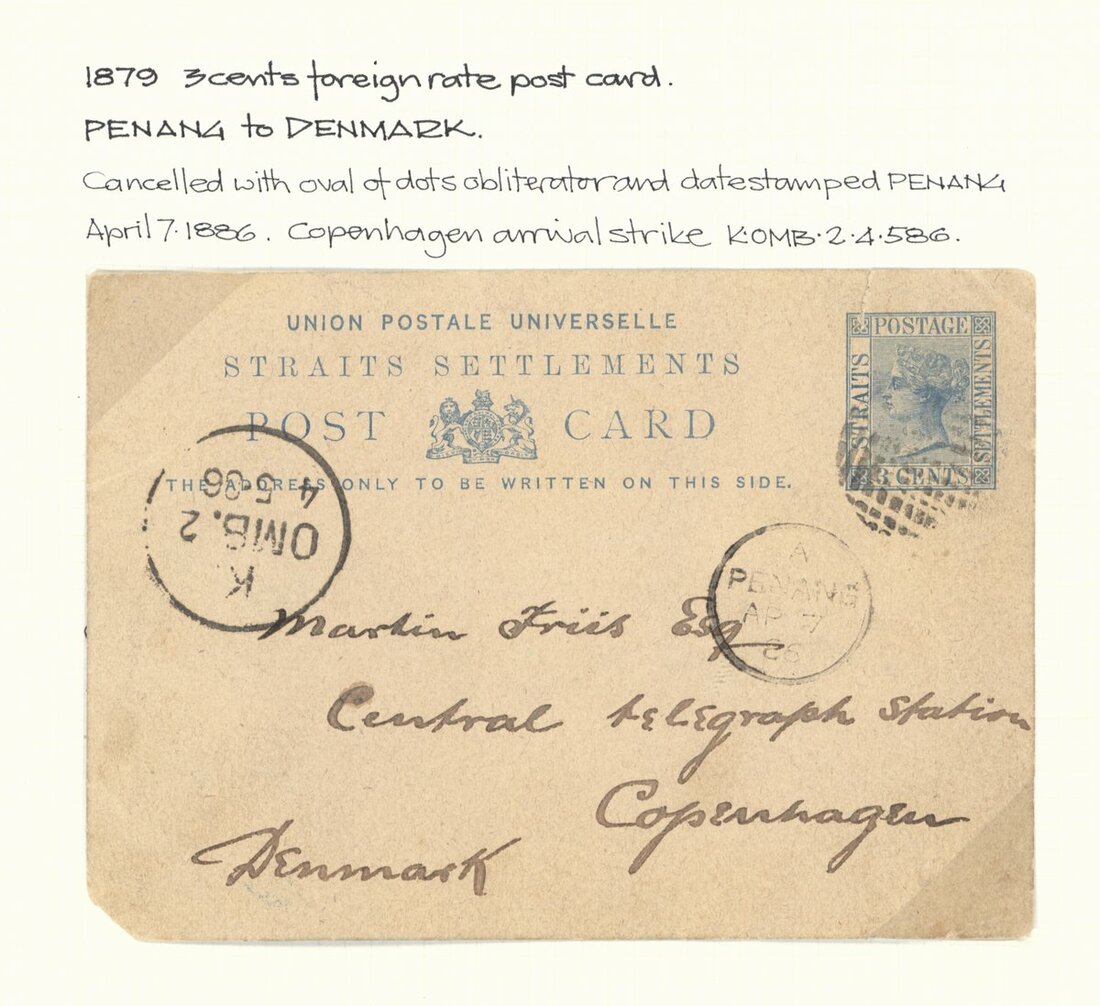 1879 3 cents foreign rate post card.
PENANG to DENMARK.
Cancelled with oval of dots obliterator and datestamped PENANG
April 7·1886. Copenhagen arrival strike K·OMB·2·4·586.
UNION POSTALE UNIVERSELLE
STRAITS SETTLEMENTS
POST CARD
THE ADDRESS ONLY TO BE WRITTEN ON THIS SIDE.
POSTAGE
STRAITS
SETTLEMENTS
3 CENTS
K.
OMB. 2
4 5.86
A
PENANG
AP 7
86
Martin Friis Esq
Central telegraph Station
Copenhagen
Denmark